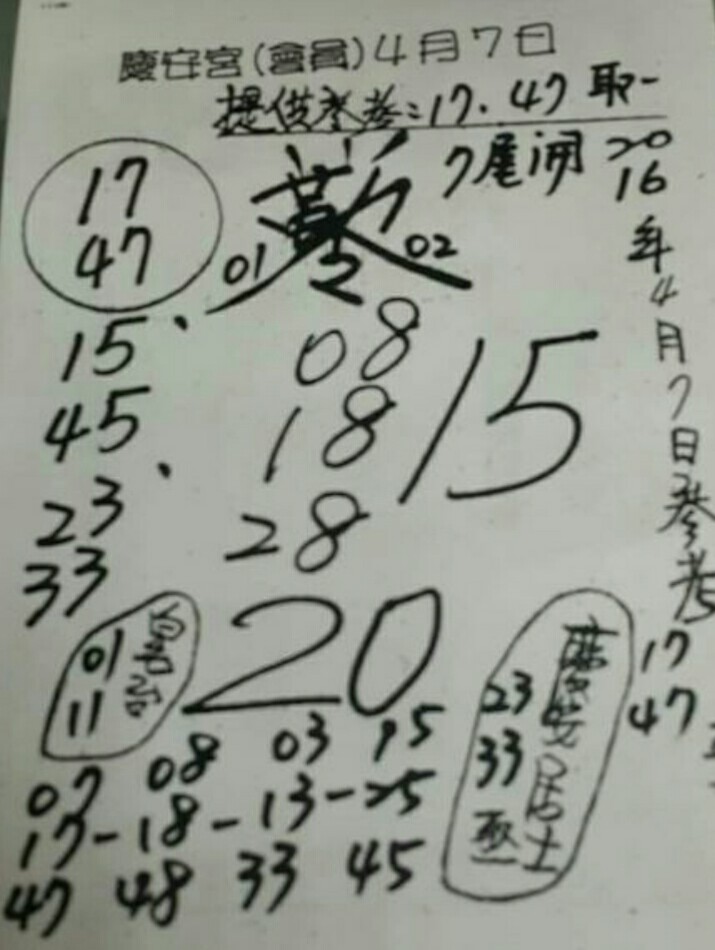 慶安宮(會員)4月7日
提供參考:17.47 取一
7尾開
2016年4月7日參考
17
47
17
47
01 02
15、
45
23、
33
08
18
28
15
20
01
11
23
33
居士
07 08 03 15
17-18-13-25
47 48 33 45